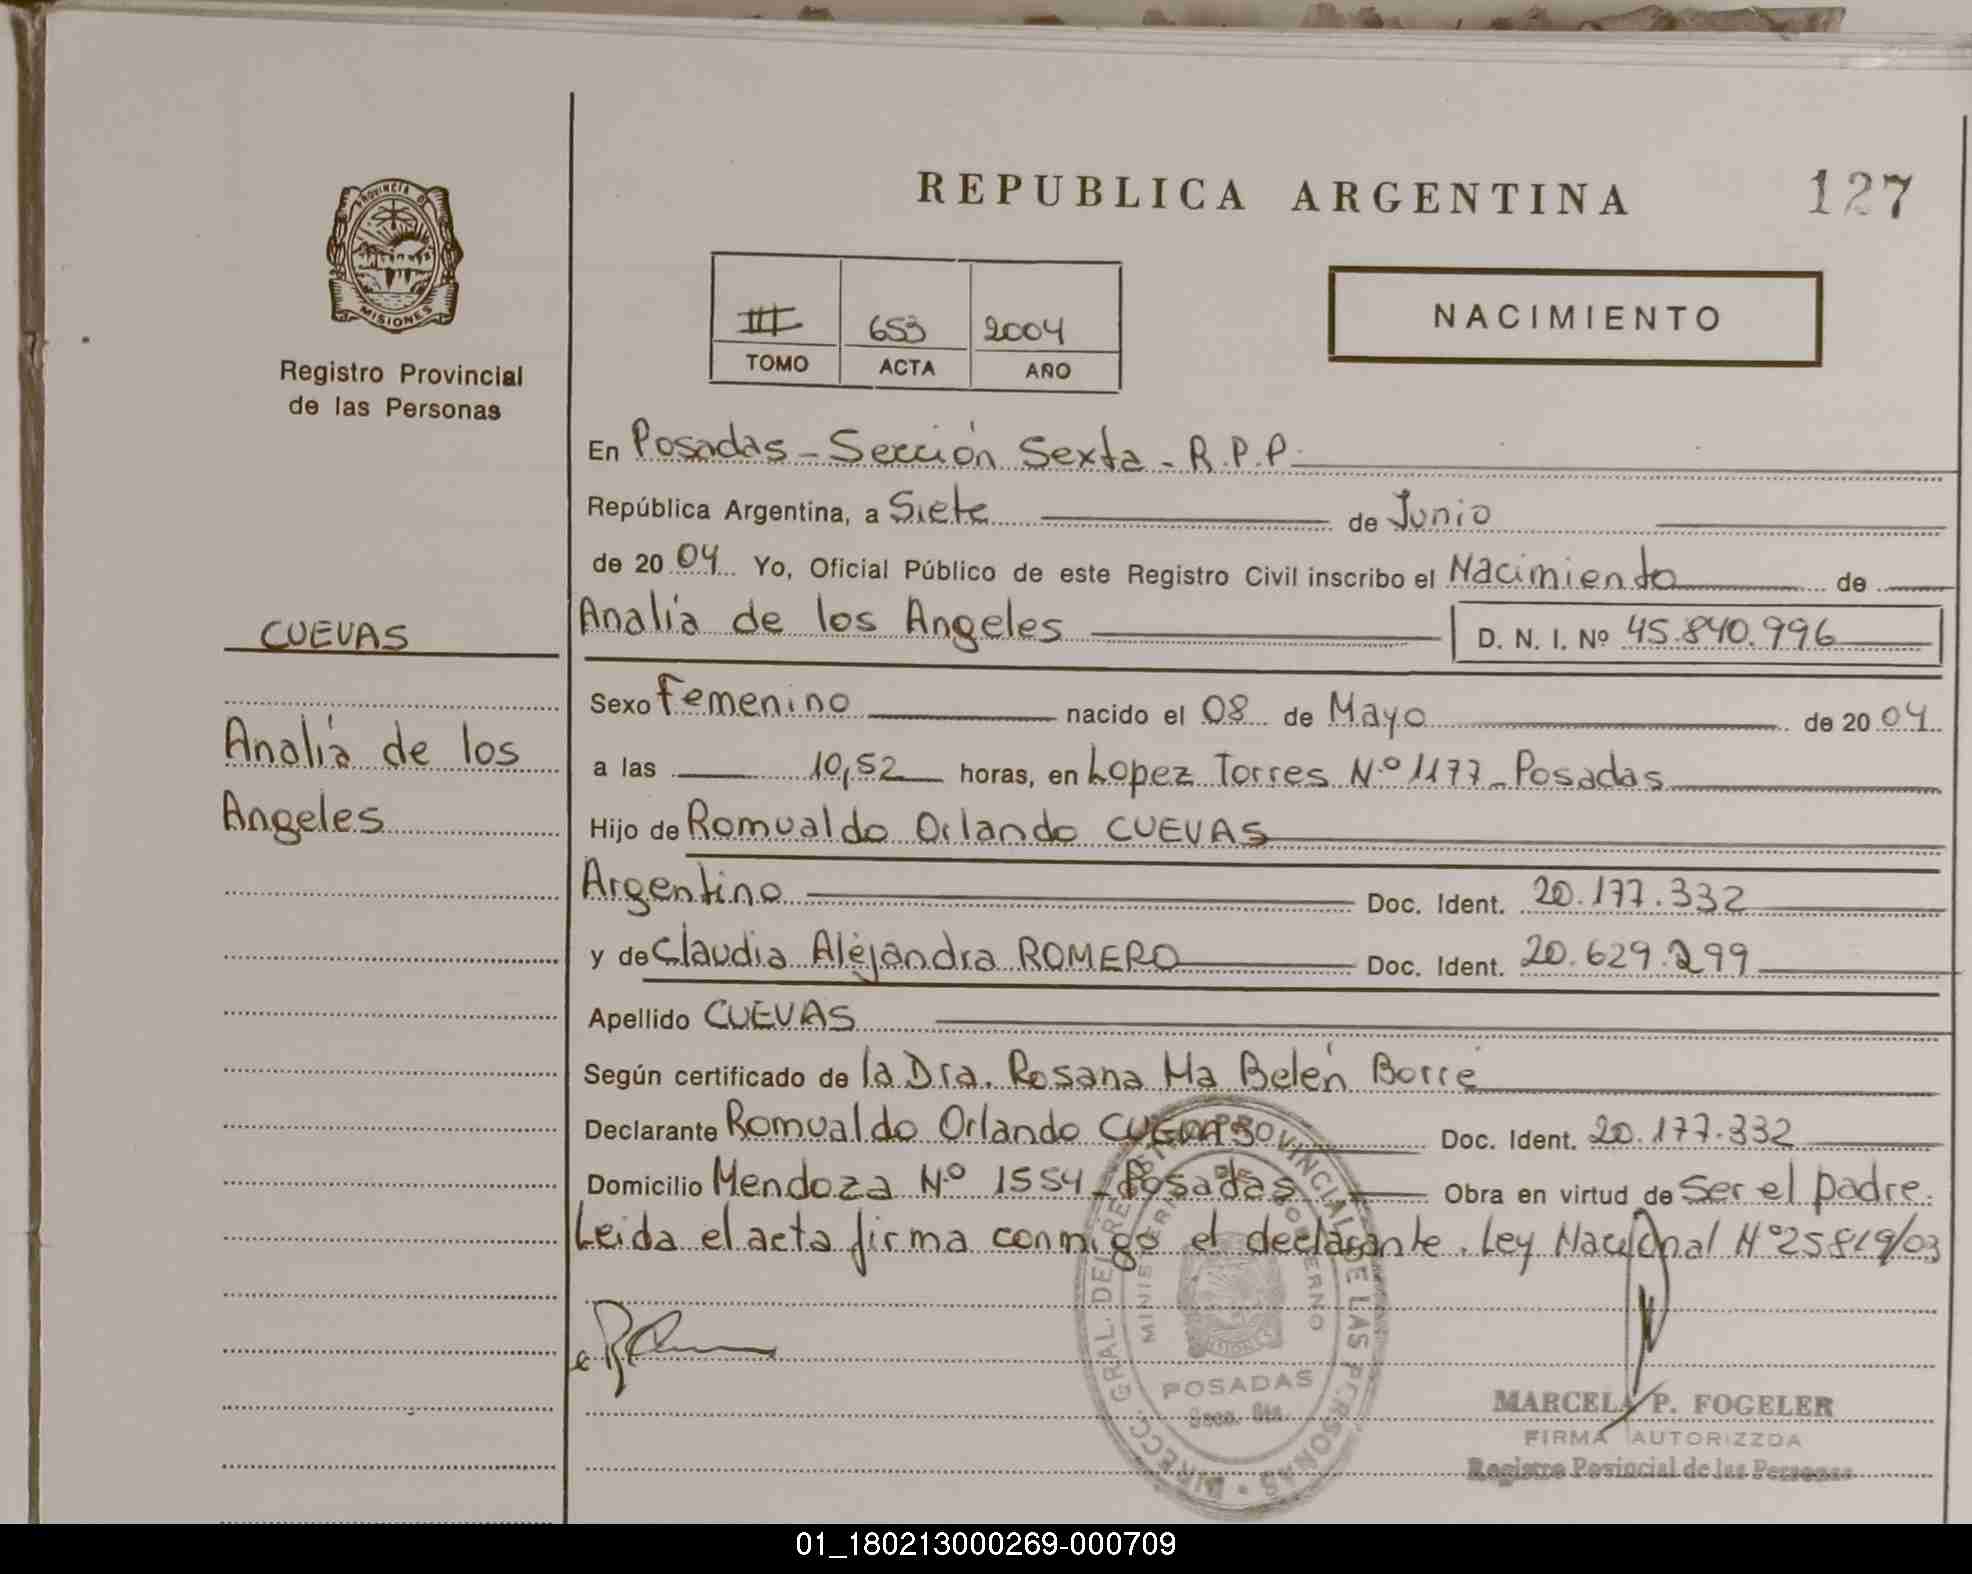 REPUBLICA ARGENTINA
127
PROVINCIA DE
MISIONES
Registro Provincial
de las Personas
III 653 2004
TOMO ACTA AÑO
NACIMIENTO
En Posadas - Sección Sexta - R.P.P.
República Argentina, a Siete de Junio
de 2004 Yo, Oficial Público de este Registro Civil inscribo el Nacimiento de
CUEVAS
Analía de los Angeles
D. N. I. Nº 45.840.996
Sexo Femenino nacido el 08 de Mayo de 2004
Analía de los
Angeles
a las 10,52 horas, en Lopez Torres N.º 1177 - Posadas
Hijo de Romualdo Orlando CUEVAS
Argentino Doc. Ident. 20.177.332
y de Claudia Alejandra ROMERO Doc. Ident. 20.629.299
Apellido CUEVAS
Según certificado de la Dra. Rosana Ma Belén Borré
Declarante Romualdo Orlando CUEVAS Doc. Ident. 20.177.332
Domicilio Mendoza N.º 1554 - Posadas Obra en virtud de Ser el padre.
Leida el acta firma conmigo el declarante. Ley Nacional Nº 25819/03
DIRECC. GRAL. DEL REGISTRO PROVINCIAL DE LAS PERSONAS
MINISTERIO DE GOBIERNO
POSADAS
Secc. 6ta.
MARCELA P. FOGELER
FIRMA AUTORIZZDA
Registro Povincial de las Personas
01_180213000269-000709